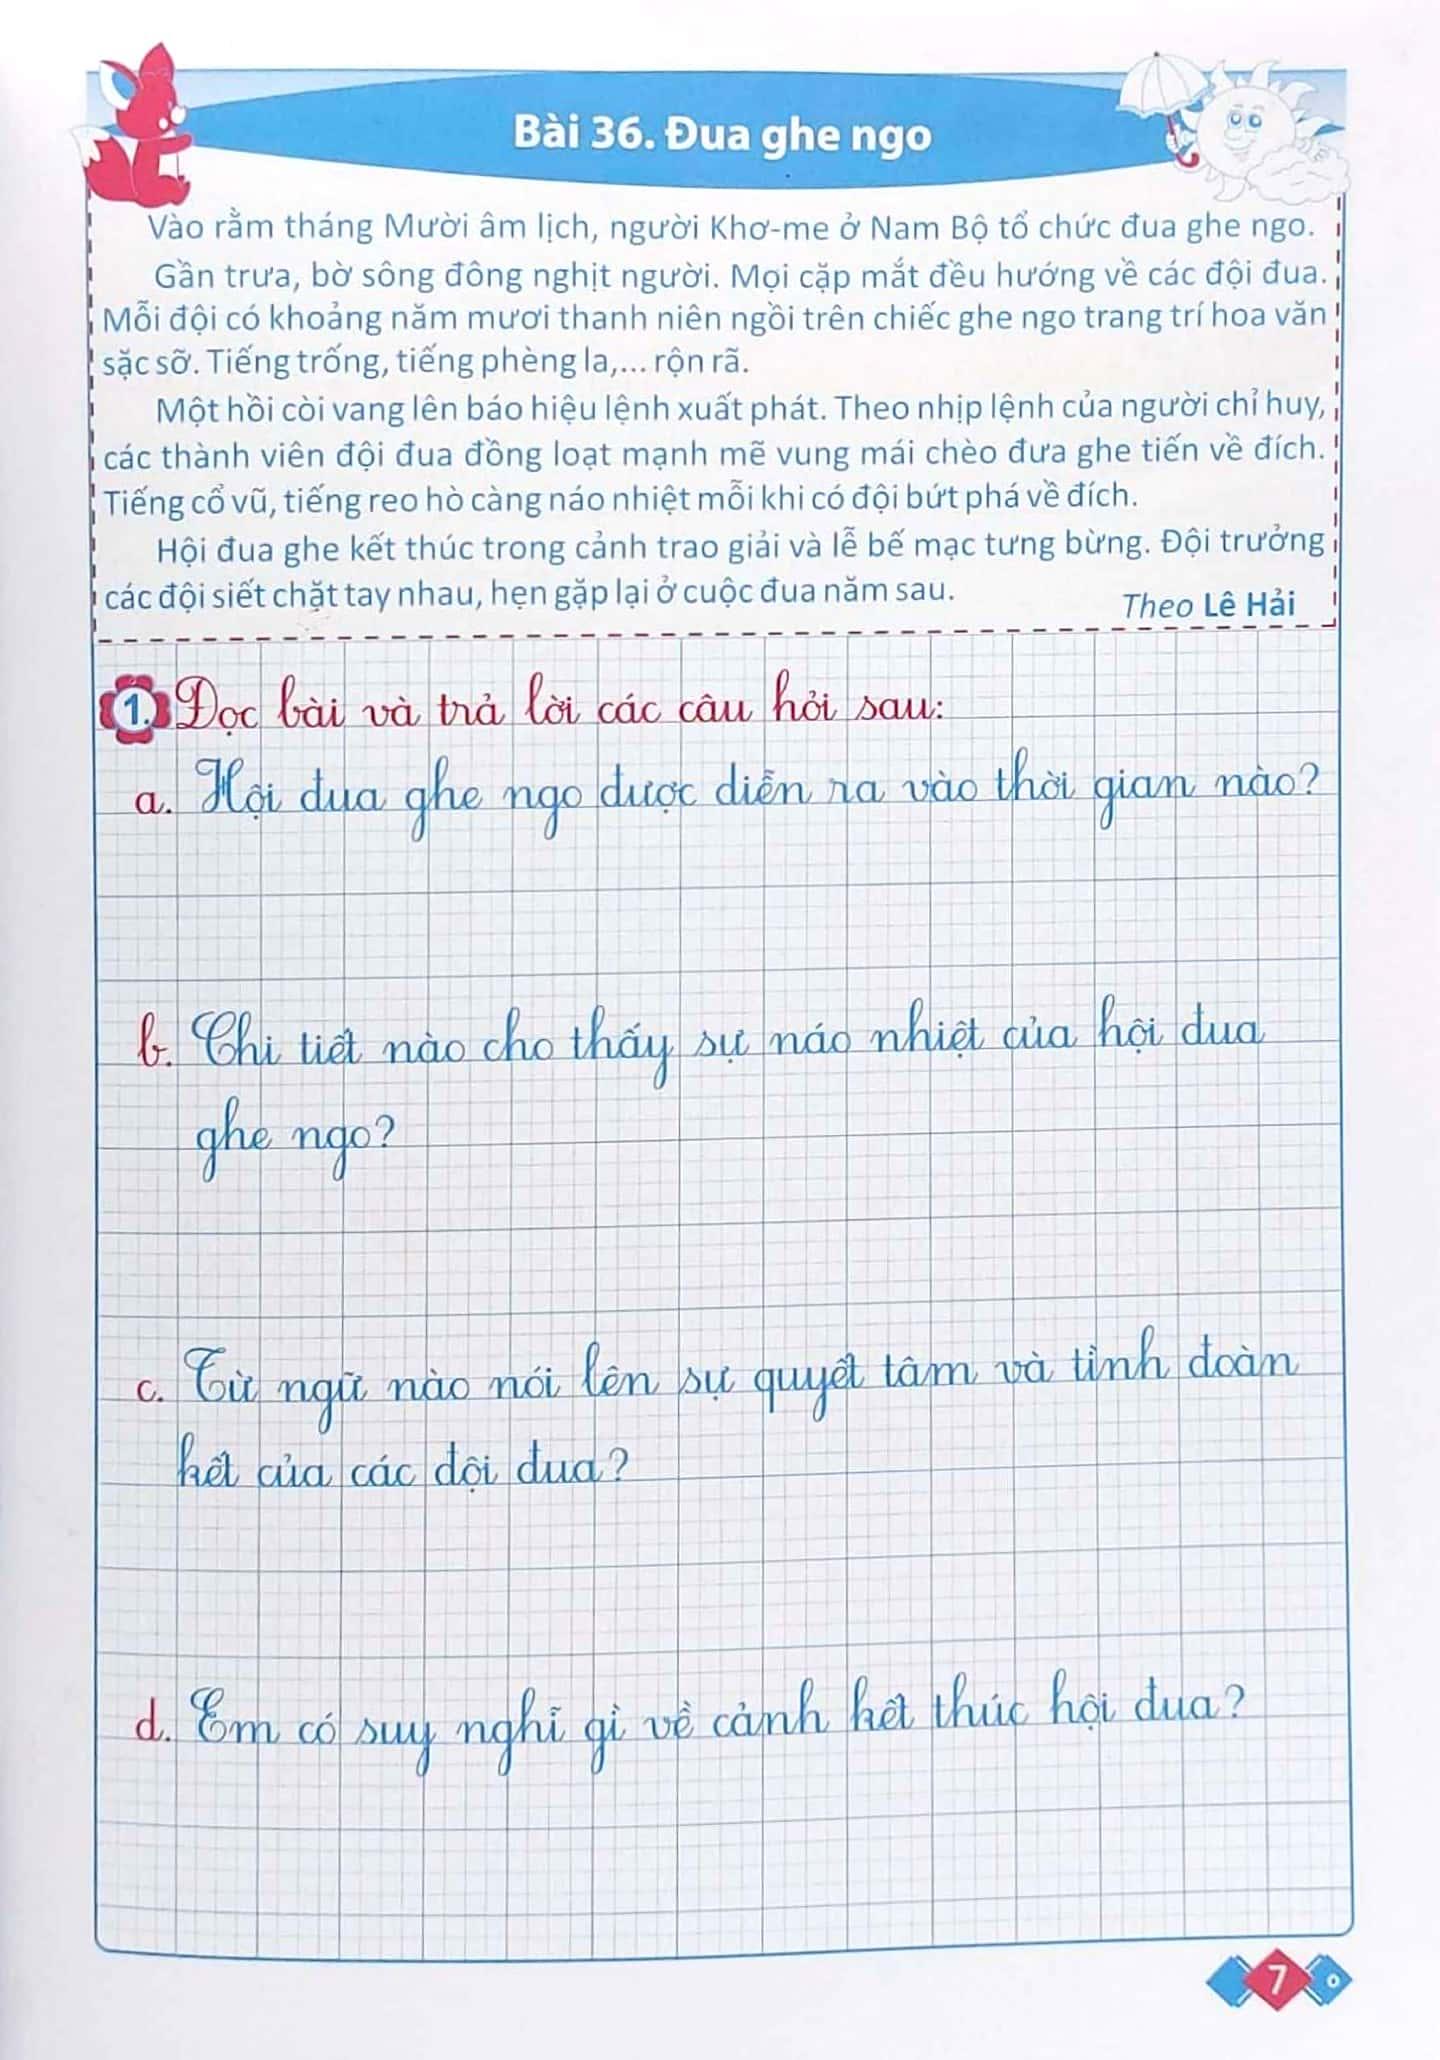 Bài 36. Đua ghe ngo
Vào rằm tháng Mười âm lịch, người Khơ-me ở Nam Bộ tổ chức đua ghe ngo.
Gần trưa, bờ sông đông nghịt người. Mọi cặp mắt đều hướng về các đội đua.
Mỗi đội có khoảng năm mươi thanh niên ngồi trên chiếc ghe ngo trang trí hoa văn
sặc sỡ. Tiếng trống, tiếng phèng la,... rộn rã.
Một hồi còi vang lên báo hiệu lệnh xuất phát. Theo nhịp lệnh của người chỉ huy,
các thành viên đội đua đồng loạt mạnh mẽ vung mái chèo đưa ghe tiến về đích.
Tiếng cổ vũ, tiếng reo hò càng náo nhiệt mỗi khi có đội bứt phá về đích.
Hội đua ghe kết thúc trong cảnh trao giải và lễ bế mạc tưng bừng. Đội trưởng
các đội siết chặt tay nhau, hẹn gặp lại ở cuộc đua năm sau.
Theo Lê Hải
1. Đọc bài và trả lời các câu hỏi sau:
a. Hội đua ghe ngo được diễn ra vào thời gian nào?
b. Chi tiết nào cho thấy sự náo nhiệt của hội đua
ghe ngo?
c. Từ ngữ nào nói lên sự quyết tâm và tinh đoàn
kết của các đội đua?
d. Em có suy nghĩ gì về cảnh kết thúc hội đua?
7